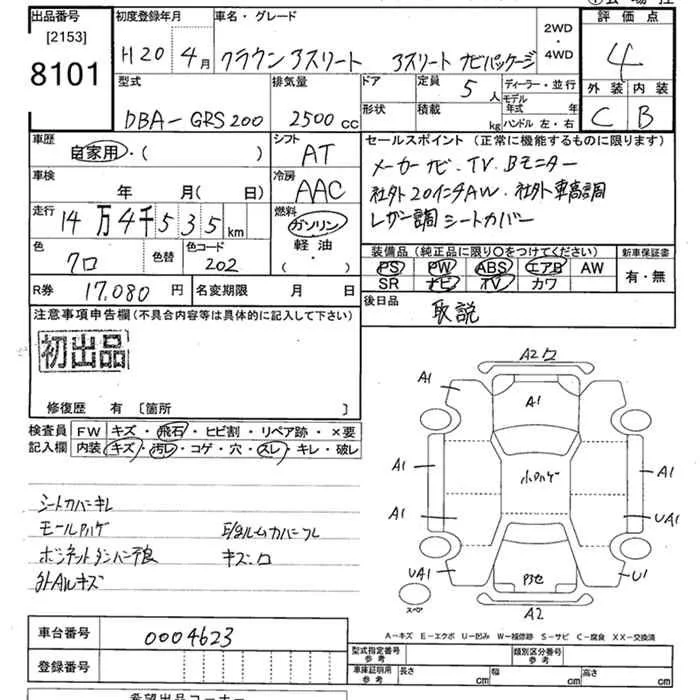 出品番号 初度登録年月 車名・グレード 2WD・4WD 評価点
[2153]
8101 H20年4月 クラウンアスリート アスリート ナビパッケージ 4
型式 排気量 ドア 定員 ディーラー・並行 外装 内装
DBA-GRS200 2500cc 5人 モデル年式 年 C B
形状 積載 kg ハンドル 左・右
車歴 自家用・( ) シフト AT セールスポイント(正常に機能するものに限ります)
車検 年 月( 日) 冷房 AAC メーカーナビ.TV.Bモニター
社外20インチAW.社外車高調
走行 14万4千535km 燃料 ガソリン 軽油 ・( ) レザー調シートカバー
色 クロ 色替 色コード 202 装備品(純正品に限り○をつけてください) 新車保証書
PS PW ABS エアB AW 有・無
SR ナビ TV カワ
R券 17,080円 名変期限 月 日 後日品 取説
注意事項申告欄(不具合内容等は具体的に記入して下さい)
初出品
修復歴 有 〔箇所 〕
検査員 FW キズ・飛石・ヒビ割・リペア跡・×要
記入欄 内装 キズ・汚レ・コゲ・穴・スレ・キレ・破レ
シートカバーキレ
モールハゲ
キズ
A2
A1 A1
A1 小ハゲ A1
A1 UA1
UA1 U1
スペア A2
A-キズ E-エクボ U-凹み W-補修跡 S-サビ C-腐食 XX-交換済
車台番号 0004623
型式指定番号 参考 類別区分番号 参考
登録番号 車庫証明用 参考 長さ cm 幅 cm 高さ cm
希望出品コーナー